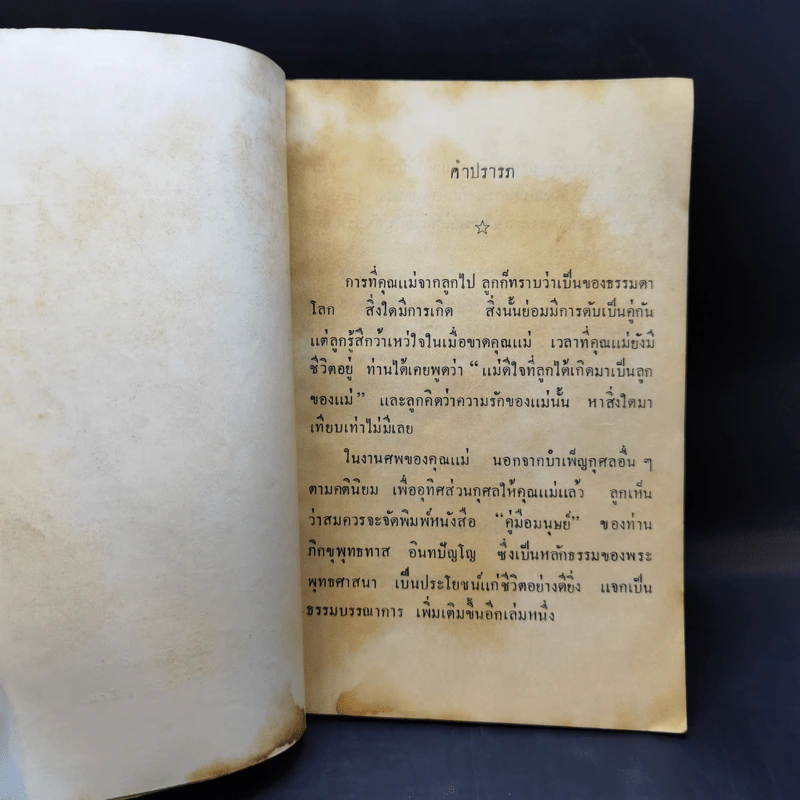 คำปรารภ
☆
การที่คุณแม่จากลูกไป ลูกก็ทราบว่าเป็นของธรรมดา
โลก สิ่งใดมีการเกิด สิ่งนั้นย่อมมีการดับเป็นคู่กัน
แต่ลูกรู้สึกว้าเหว่ใจในเมื่อขาดคุณแม่ เวลาที่คุณแม่ยังมี
ชีวิตอยู่ ท่านได้เคยพูดว่า “แม่ดีใจที่ลูกได้เกิดมาเป็นลูก
ของแม่” และลูกคิดว่าความรักของแม่นั้น หาสิ่งใดมา
เทียบเท่าไม่มีเลย
ในงานศพของคุณแม่ นอกจากบำเพ็ญกุศลอื่น ๆ
ตามคตินิยม เพื่ออุทิศส่วนกุศลให้คุณแม่แล้ว ลูกเห็น
ว่าสมควรจะจัดพิมพ์หนังสือ “คู่มือมนุษย์” ของท่าน
ภิกขุพุทธทาส อินทปัญโญ ซึ่งเป็นหลักธรรมของพระ
พุทธศาสนา เป็นประโยชน์แก่ชีวิตอย่างดียิ่ง แจกเป็น
ธรรมบรรณาการ เพิ่มเติมขึ้นอีกเล่มหนึ่ง